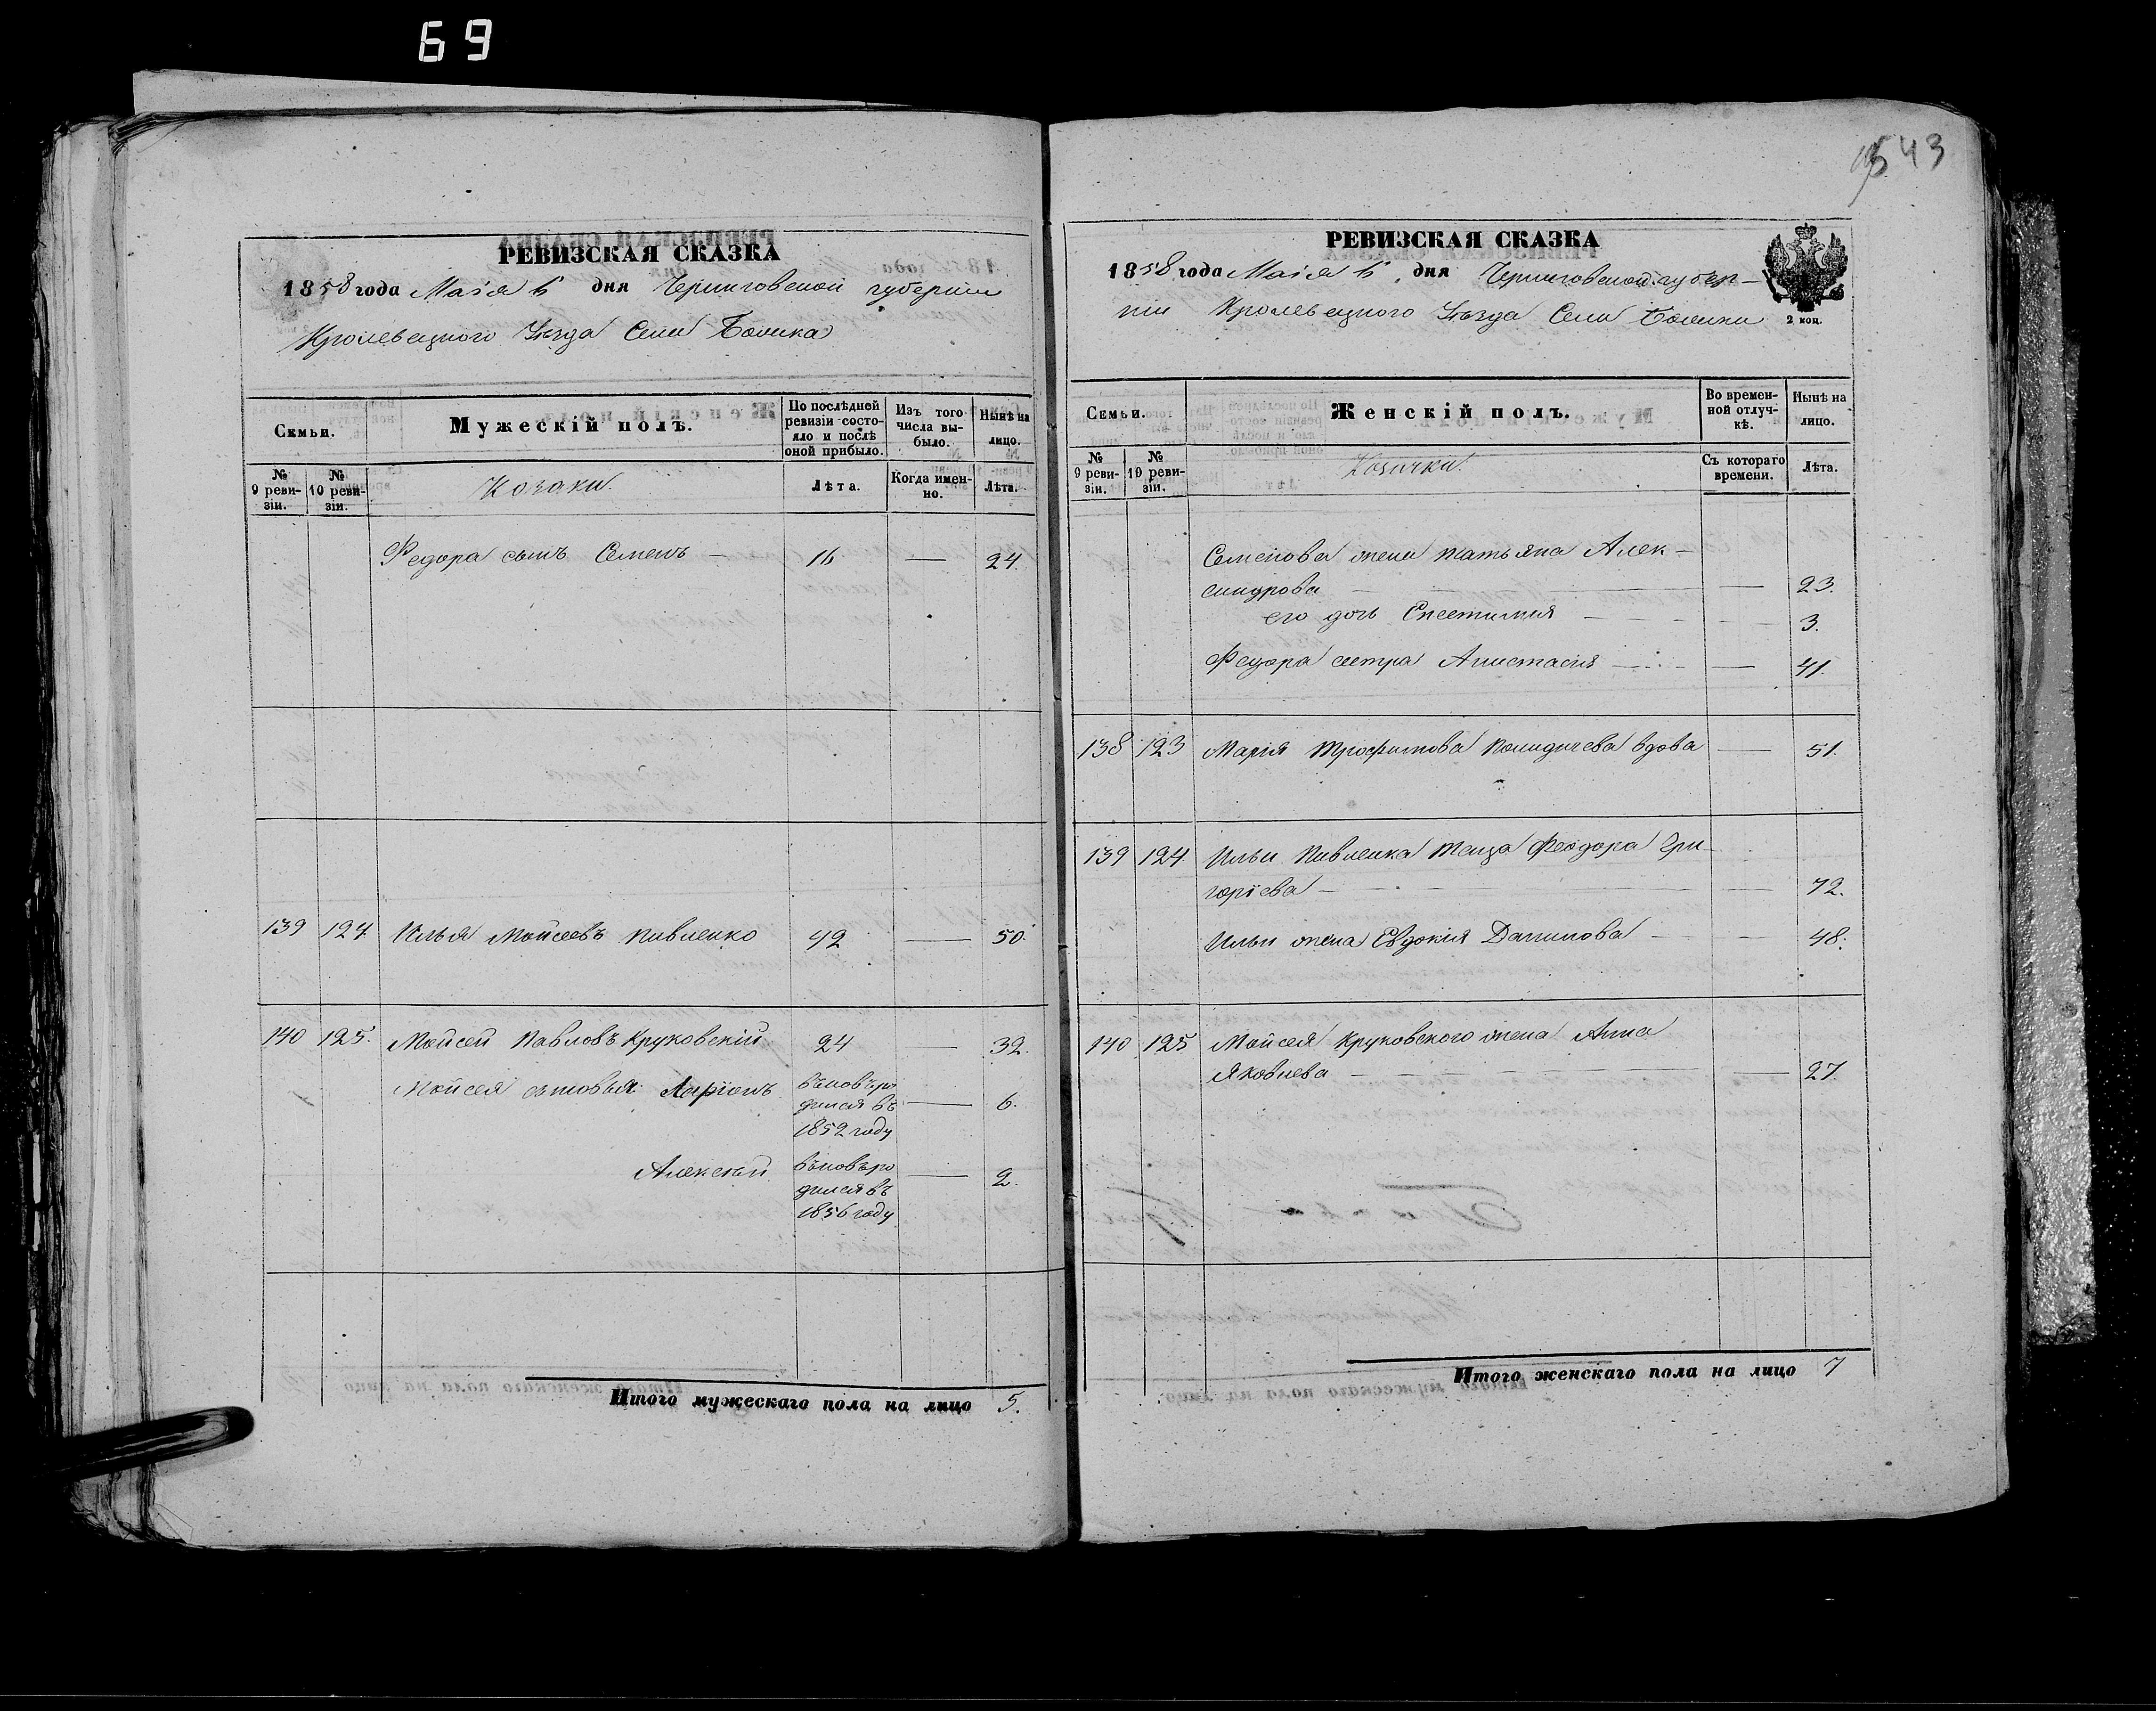 69
543
РЕВИЗСКАЯ СКАЗКА
1858 года Маія 6 дня Черниговской губерніи
Кролевецкого Уѣзда Села
Семьи.
Мужескій полъ.
По послѣдней ревизіи состояло и послѣ оной прибыло.
Изъ того числа выбыло.
Нынѣ на лицо.
№ 9 ревизіи.
№ 10 ревизіи.
Козаки.
Лѣта.
Когда именно.
Лѣта.
Федора сынъ Семенъ — 16 — 24.
139 124 Илья Мойсеевъ Павленко 42 — 50.
140 125. Мойсей Павловъ Круковскій 24 — 32.
Мойсея сыновья Ларіонъ въновъ ро
дился въ — 6.
1852 году
Алексѣй въновъ ро
— 2.
дился въ
1856 году
Итого мужескаго пола на лицо 5.
РЕВИЗСКАЯ СКАЗКА
1858 года Маія 6 дня Черниговской губер-
ніи Кролевецкого Уѣзда Села
2 коп.
Семьи.
Женскій полъ.
Во временной отлучкѣ.
Нынѣ на лицо.
№ 9 ревизіи.
№ 10 ревизіи.
Козачки.
Съ котораго времени.
Лѣта.
Семенова жена Татьяна Алек-
сандрова — — 23.
его дочь — 3.
Федора сестра Анастасія — — 41.
138 123 Марія Трофимова вдова — 51.
139 124 Ильи Павленка теща Феодора Гри-
горіева — — 72.
Ильи жена Евдокія Данилова — 48.
140 125 Мойсея Круковского жена Анна
Яковлева — 27.
Итого женскаго пола на лицо 7